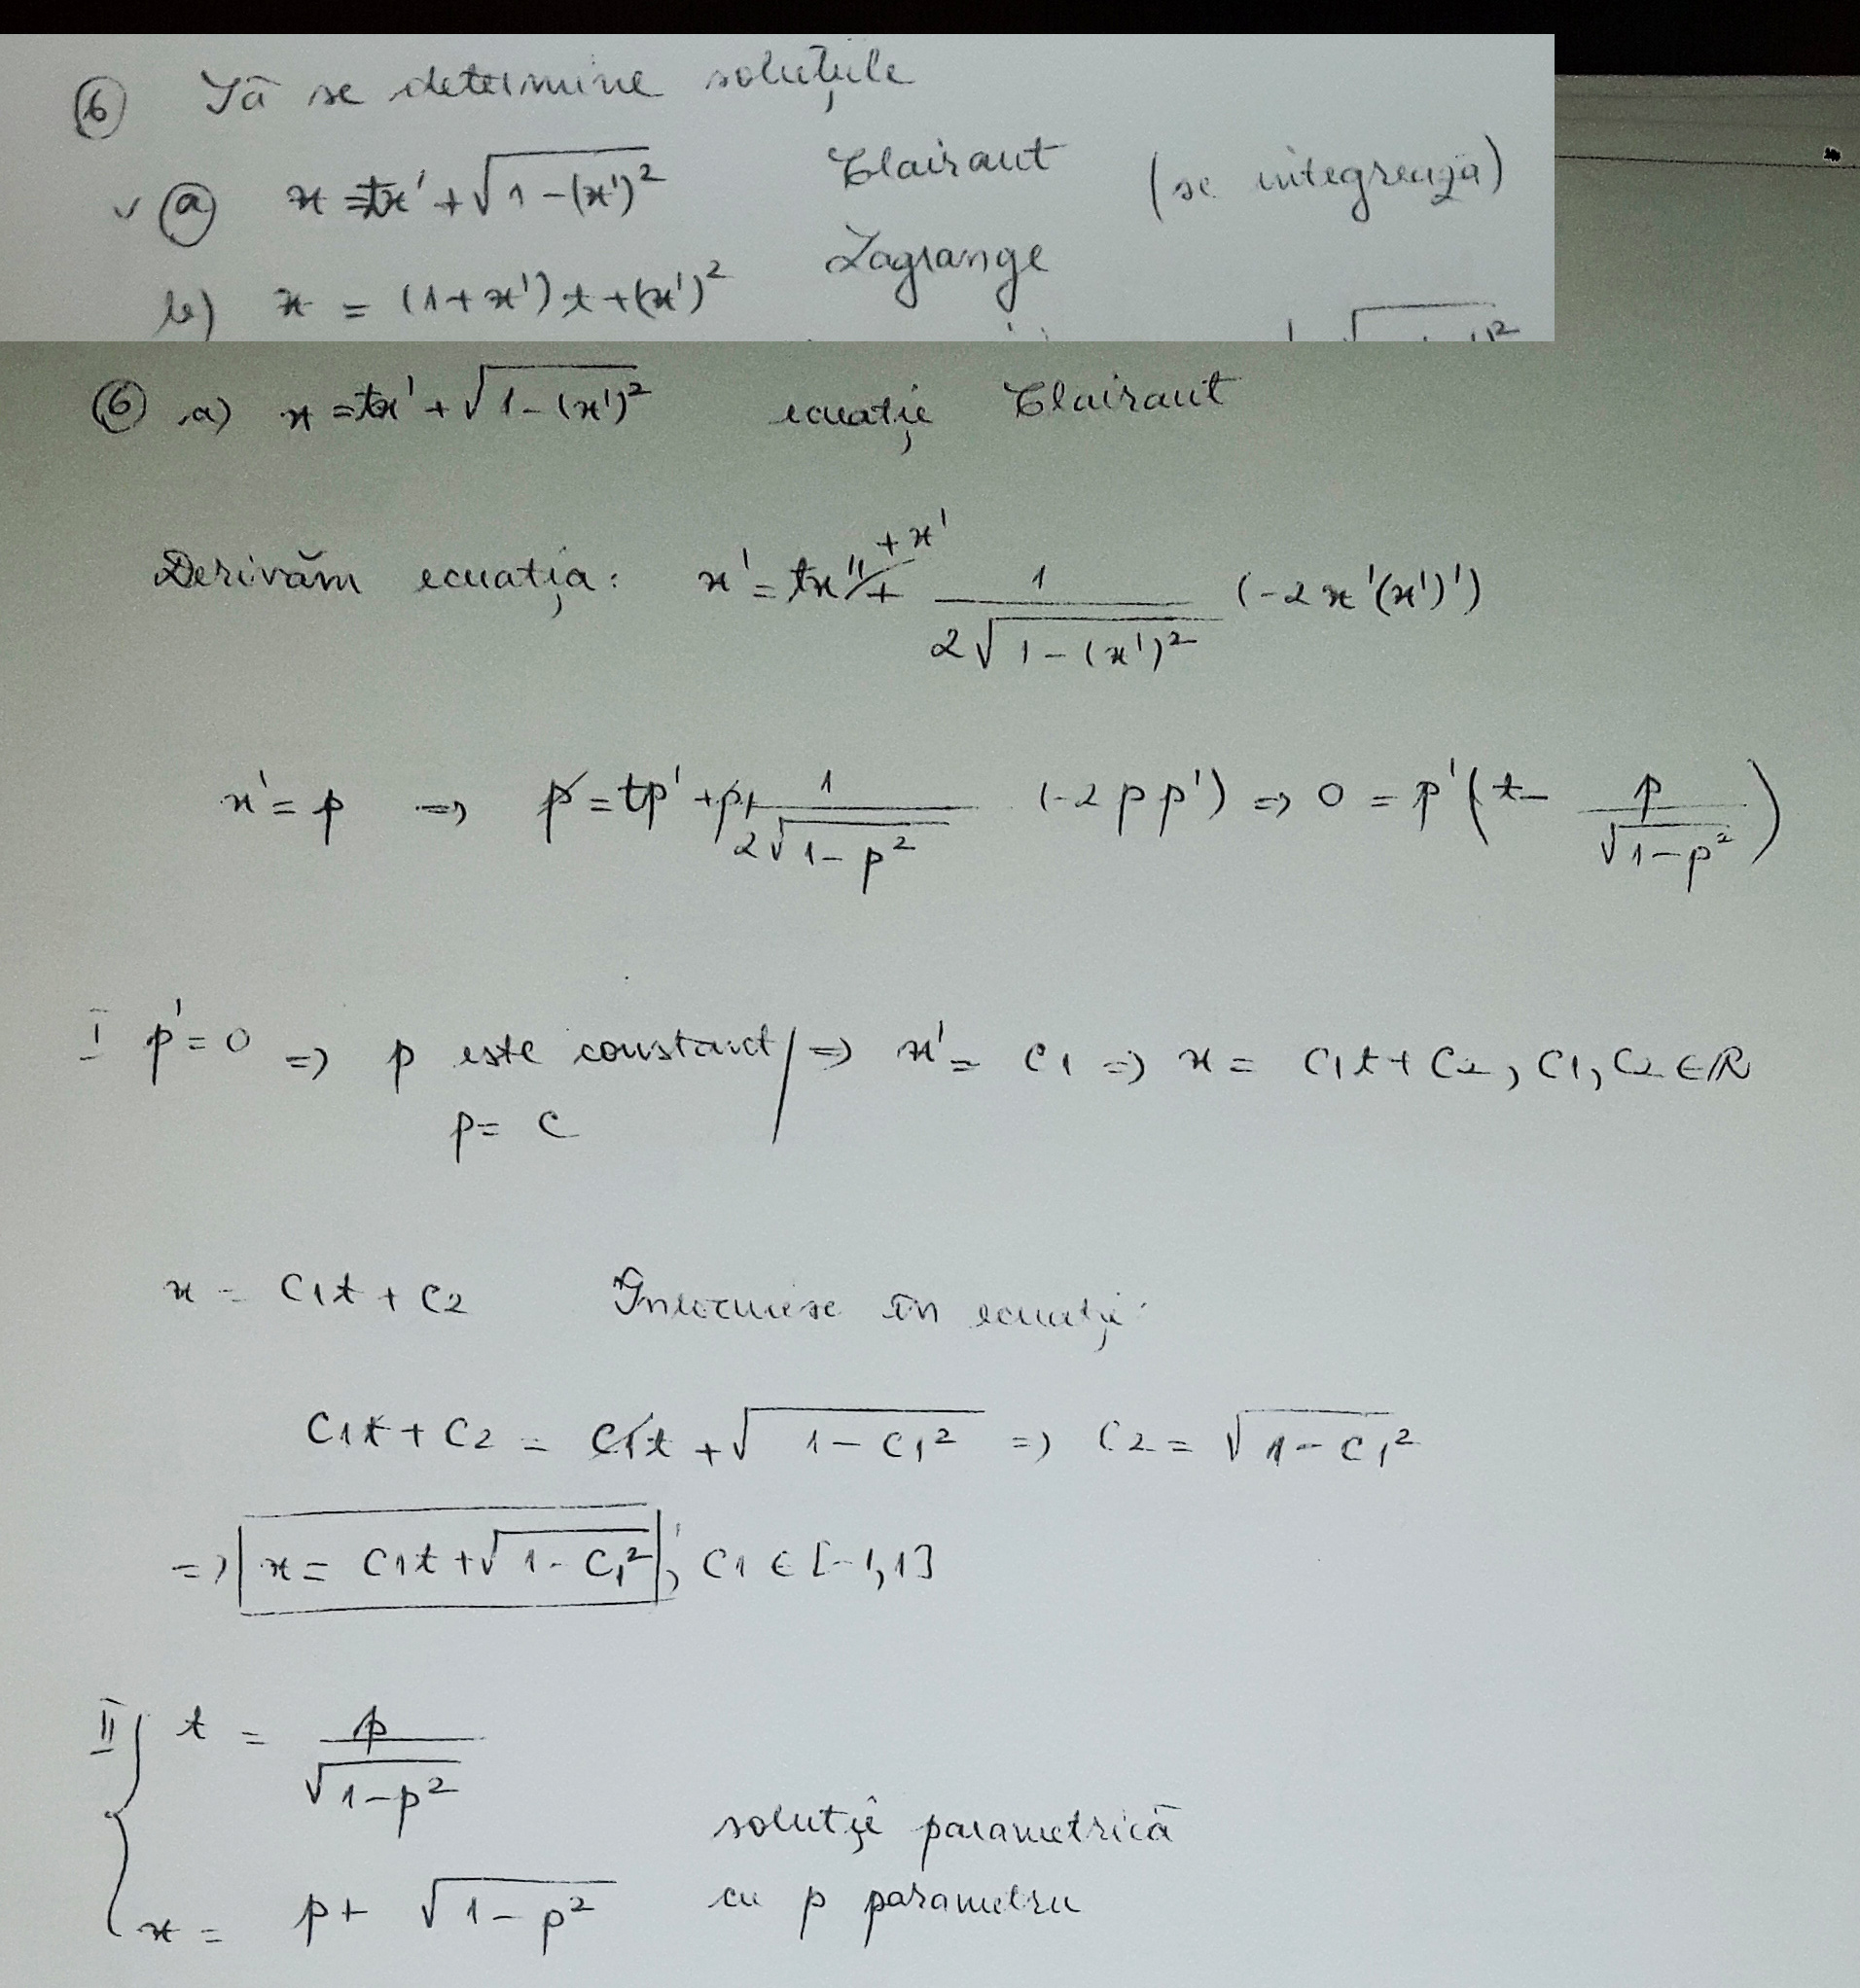 6 Să se determine soluțiile
a) x = tx' + √(1-(x')²) Clairaut (se integrează)
b) x = (1+x')t + (x')² Lagrange
6 a) x = tx' + √(1-(x')²) ecuație Clairaut
Derivăm ecuația: x' = tx'' + x' + 1/(2√(1-(x')²)) (-2x'(x')')
x' = p => p = tp' + p + 1/(2√(1-p²)) (-2pp') => 0 = p'(t - p/√(1-p²))
I p' = 0 => p este constant / => x' = C1 => x = C1t + C2, C1, C2 ∈ R
p = C
x = C1t + C2 Înlocuiesc în ecuație
C1t + C2 = C1t + √(1-C1²) => C2 = √(1-C1²)
=> x = C1t + √(1-C1²), C1 ∈ [-1,1]
II { t = p/√(1-p²)
soluție parametrică
x = p + √(1-p²) cu p parametru